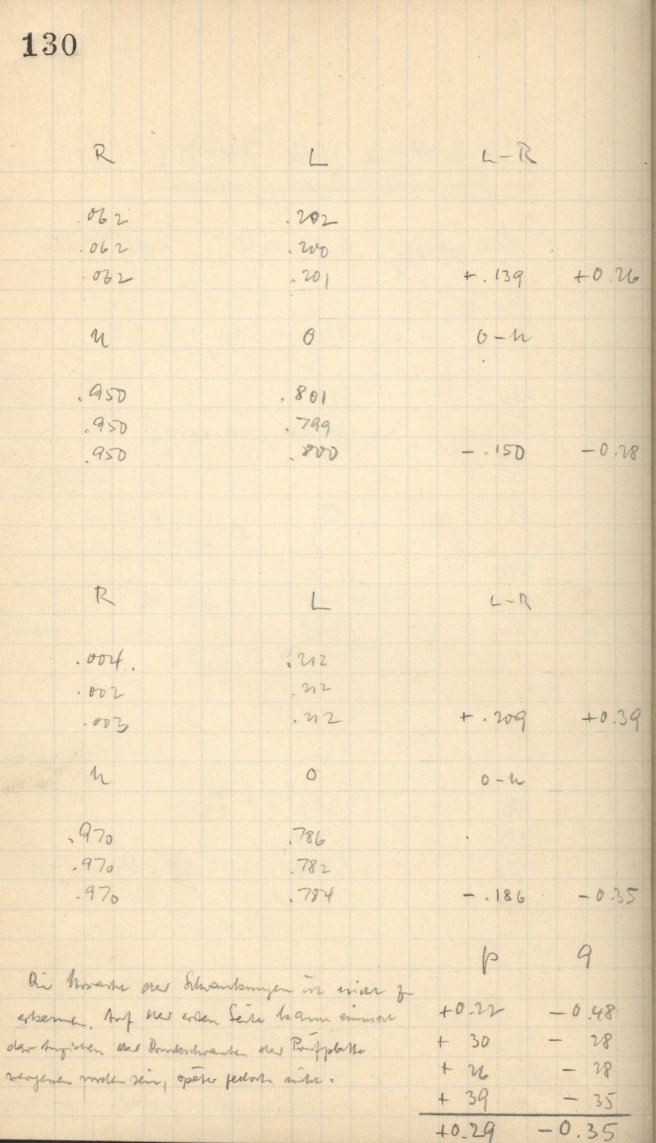 130
R L L-R
.062 .202
.062 .200
.062 .201 + .139 +0.26
u O O-u
.950 .801
.950 .799
.950 .800 - .150 -0.28
R L L-R
.004 .212
.002 .212
.003 .212 + .209 +0.39
u O O-u
.970 .786
.970 .782
.970 .784 - .186 -0.35
p q
Die Ursache der Schwankungen ist nicht zu
+0.22 -0.48
erkennen. Auf der ersten Seite kann einmal
+ 30 - 28
das Anziehen der Druckschrauben der Prüfplatte
+ 26 - 28
vergessen worden sein, später jedoch nicht.
+ 39 - 35
+0.29 -0.35